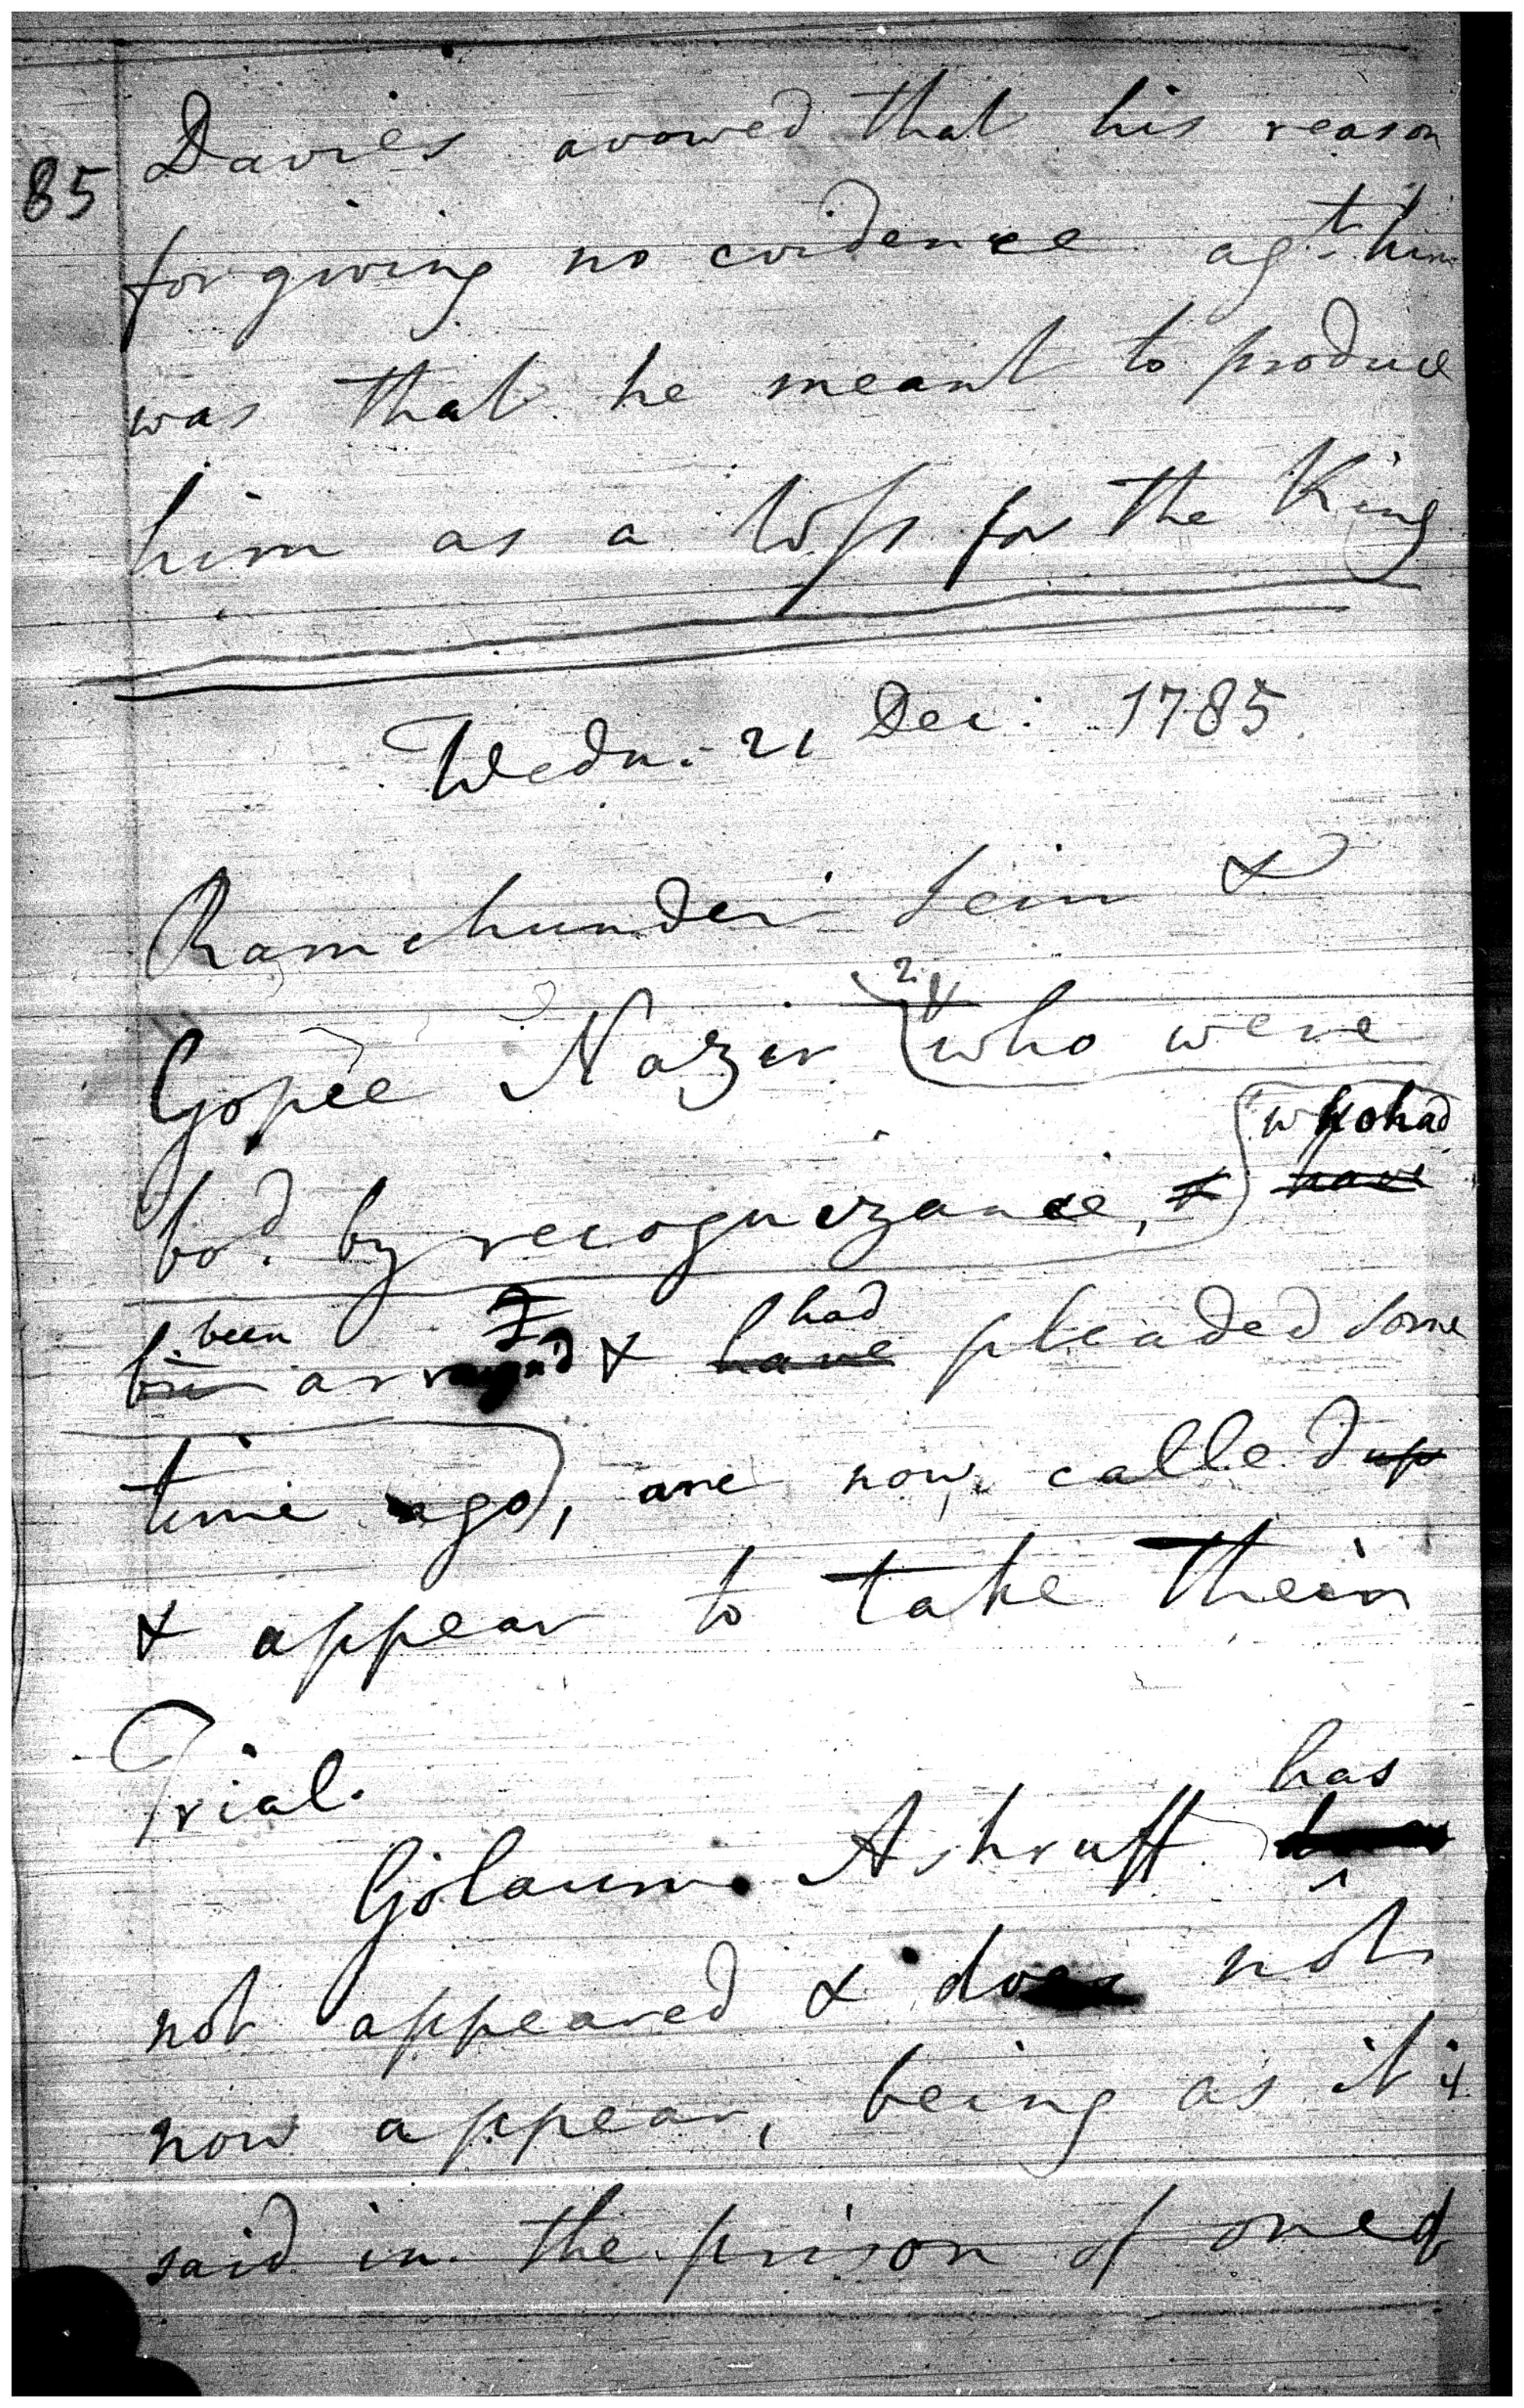 85
Davies avowed that his reason
for giving no evidence agt. him
was that he meant to produce
him as a Wss for the King
Wedn. 21 Dec: 1785.
Ramchunder Sein &
2
Gopee Nazir who were
who had
bod. by recognizance, & have
been had
arraign'd & have pleaded some
time ago, are now called up
& appear to take their
Trial.
has
Golaum Ashruff
not appeared & does not
now appear, being as it is
said in the prison of one of